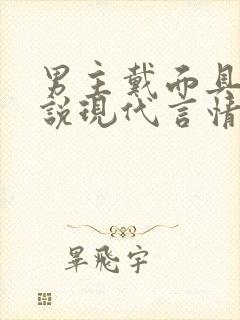 男主戴而具
說現代言情
畢飛宇